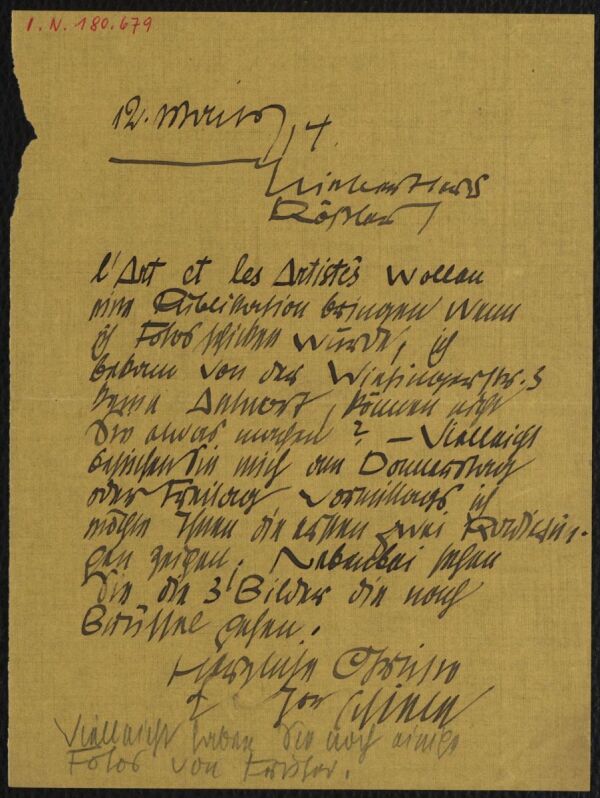 I.N. 180.679
12. März 14.
Lieber Herr
Rößler
l'Art et les Artistês wollen
eine Publikation bringen wenn
ich Fotos schicken würde, ich
bekam von der Wiesingerstr. 3
keine Antwort, können nicht
Sie etwas machen? – Vielleicht
besuchen Sie mich am Donnerstag
oder Freitag vormittags ich
möchte Ihnen die ersten zwei Radierun-
gen zeigen. Nebenbei sehen
Sie die 3 Bilder die nach
Brüssel gehen.
Herzliche Grüsse
Ihr Schiele
Vielleicht haben Sie noch einige
Fotos von früher.